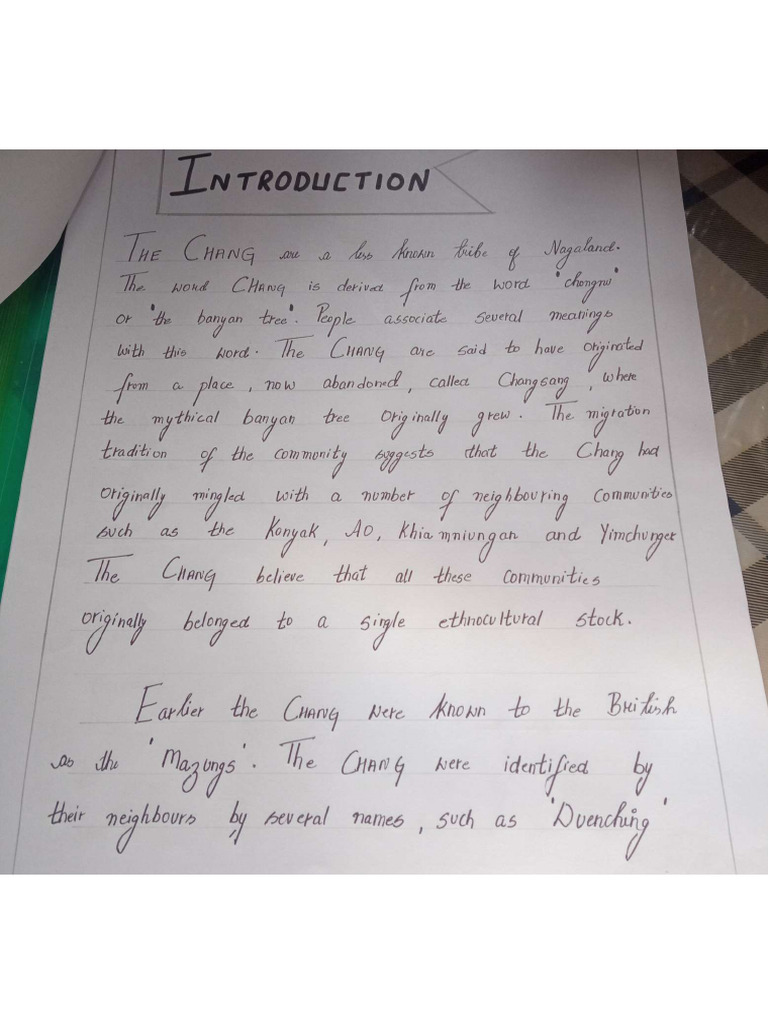 INTRODUCTION
THE CHANG are a less known tribe of Nagaland.
The word CHANG is derived from the word 'chongnu'
or 'the banyan tree'. People associate several meanings
with this word. The CHANG are said to have originated
from a place, now abandoned, called Changsang, where
the mythical banyan tree originally grew. The migration
tradition of the community suggests that the Chang had
originally mingled with a number of neighbouring communities
such as the Konyak, AO, Khiamniungan and Yimchunger
The CHANG believe that all these communities
originally belonged to a single ethnocultural stock.
Earlier the CHANG were known to the British
as the 'Mazungs'. The CHANG were identified by
their neighbours by several names, such as 'Duenching'